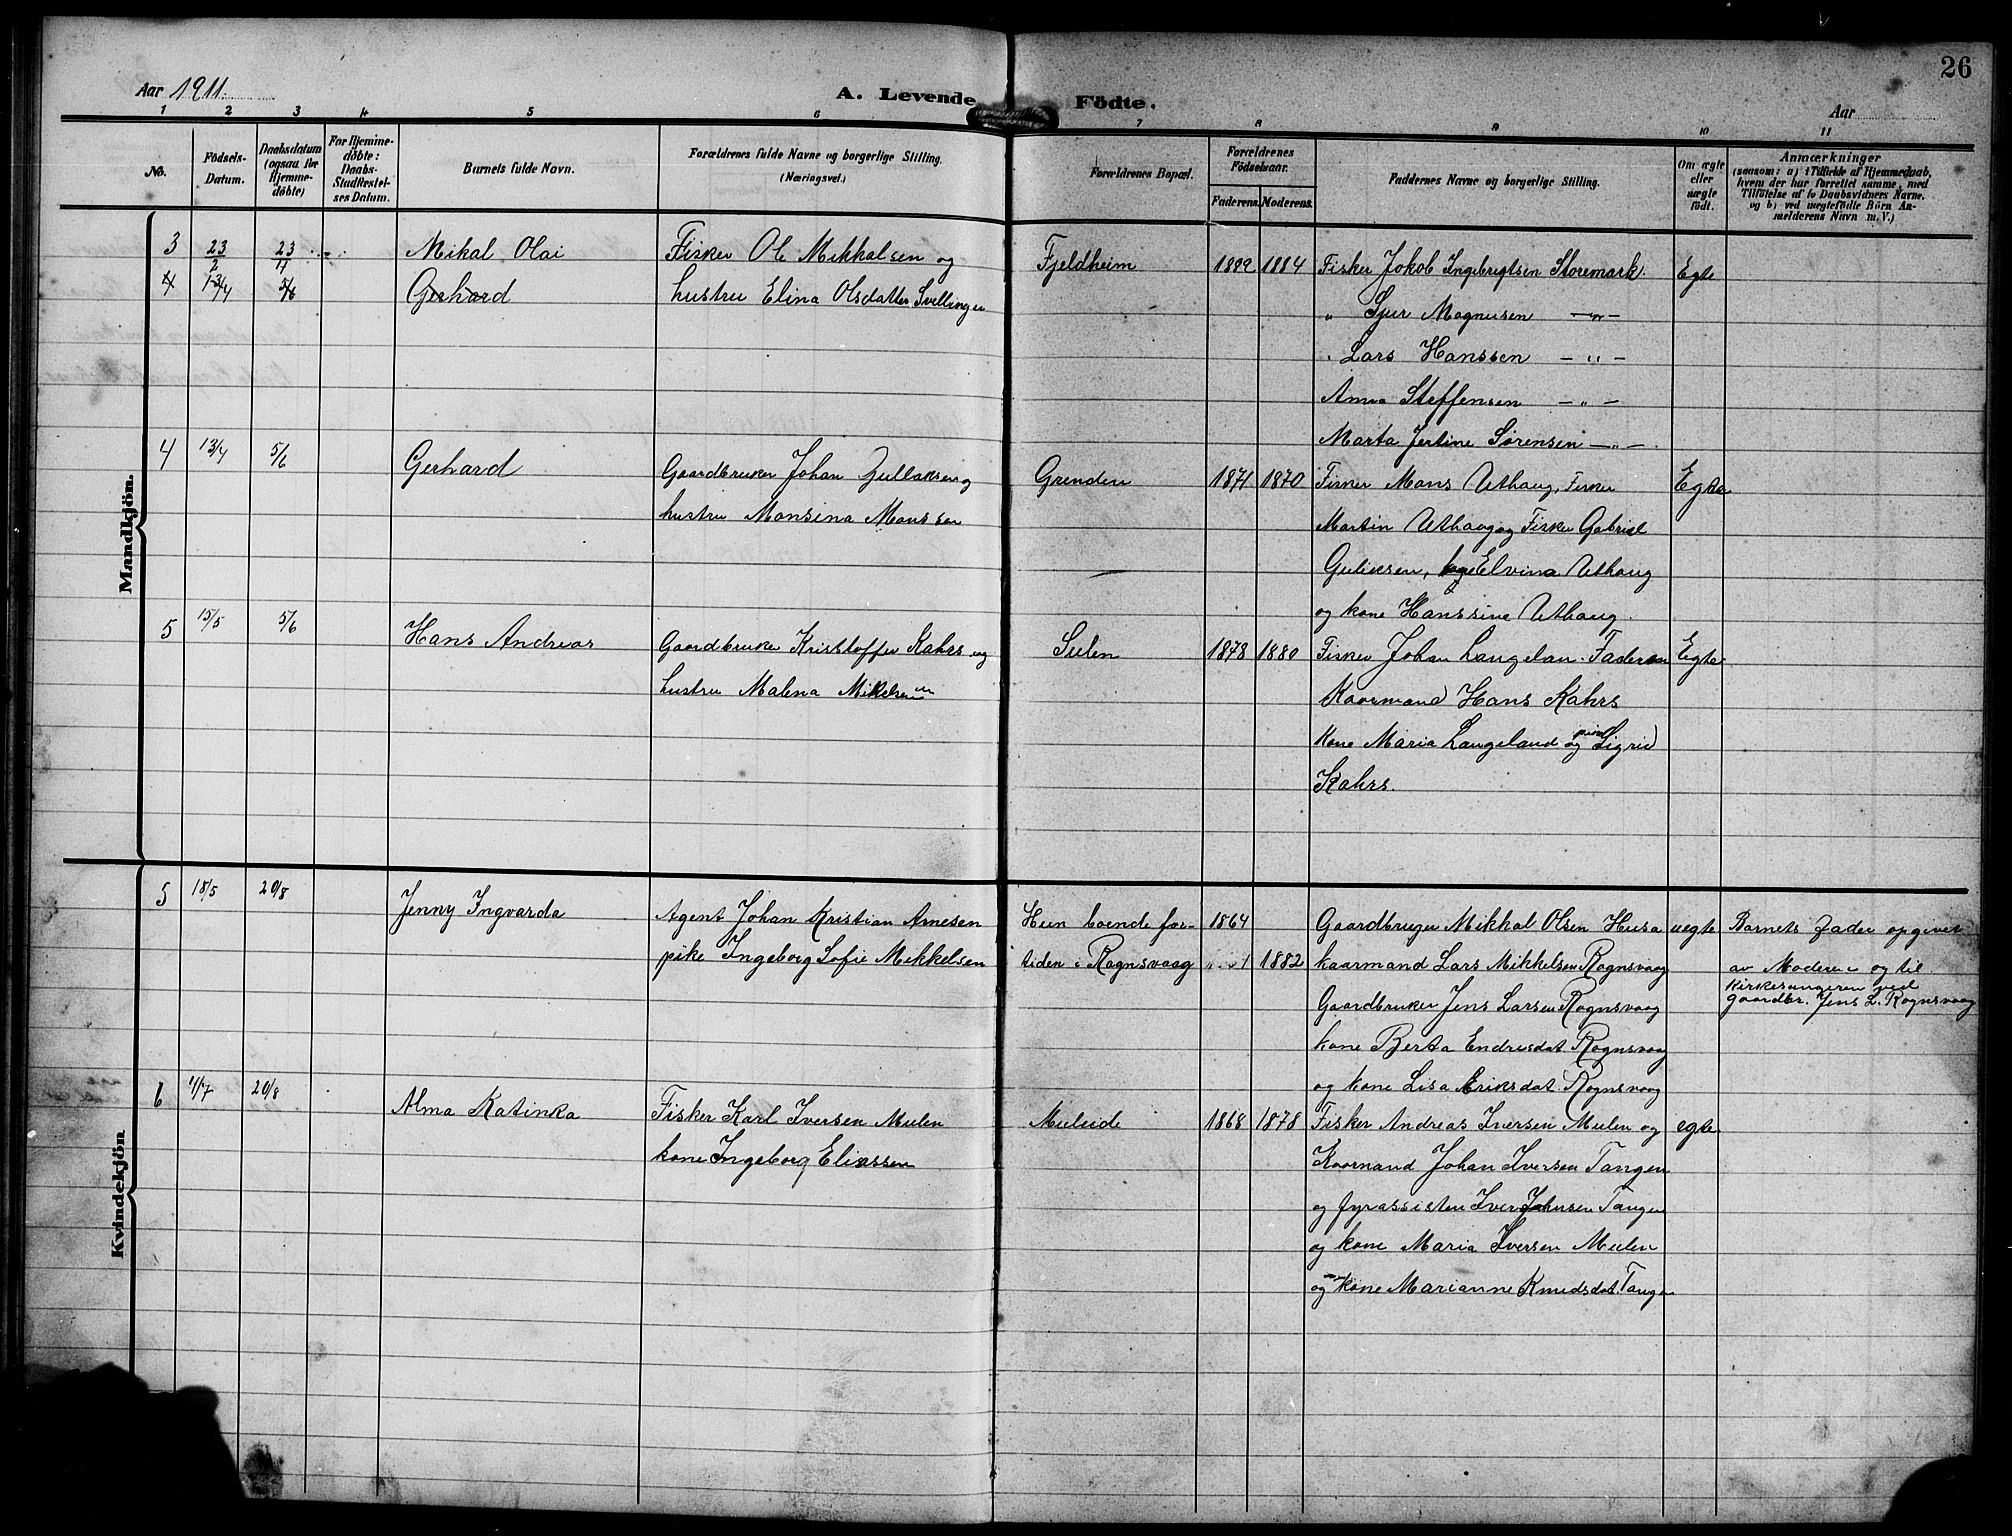 26
Aar 1911.
A. Levende Födte.
Aar
1 2 3 4 5 6 7 8 9 10 11
No.
Födsels-Datum.
Daabsdatum (ogsaa for Hjemme-döbte)
For Hjemme-döbte: Daabs-Stadfæstel-ses Datum.
Barnets fulde Navn.
Forældrenes fulde Navne og borgerlige Stilling.
(Næringsvei.)
Forældrenes Bopæl.
Forældrenes Födselsaar.
Faderens. Moderens.
Faddernes Navne og borgerlige Stilling.
Om ægte eller uægte födt.
Anmærkninger
(saasom: a) i Tilfælde af Hjemmedaab,
hvem der har forrettet samme, med
Tilföielse af to Daabsvidners Navne,
og b) ved uægtefödte Börn An-
melderens Navn m. V.)
Mandkjön.
3 23/2 23/4 Mikal Olai Fisker Ole Mikkalsen og Fjeldheim 1882 1884 Fisker Jokob Ingebrigtsen Storemark. Egte
4 13/4 5/6 Gerhard hustru Elina Olsdatter Svellingen
" Sjur Magnusen —"—
" Lars Hanssen —"—
Anna Steffensen —"—
Marta Jertine Sørensen —"—
4 13/4 5/6 Gerhard Gaardbruker Johan Gullaksen og Grenden 1871 1870 Fisker Mons Uthaug, Fisker Egte
hustru Monsina Monssen Martin Uthaug og Fisker Gabriel
Guliksen, Elvina Uthaug
og kone Hanssine Uthaug.
5 15/5 5/6 Hans Andreas Gaardbruker Kristoffer Kahrs og Sulen 1878 1880 Fisker Johan Langeland. Faderen Egte
hustru Malena Mikelsen Kaarmand Hans Kahrs
kone Maria Langeland og pike Sigrid
Kahrs.
Kvindekjön
5 18/5 20/8 Jenny Ingvarda Agent Johan Kristian Arnesen Hun boende for- 1864 Gaardbruger Mikkal Olsen Husa uegte Barnets Fader opgivet
pike Ingeborg Sofie Mikkelsen tiden i Rognsvaag 1882 kaarmand Lars Mikkelsen Rognsvaag av Moderen og til
Kirkesangeren ved
Gaardbruker Jens Larsen Rognsvaag gaardbr. Jens L. Rognsvaag
kone Berta Endresdat. Rognsvaag
og kone Lisa Eriksdat. Rognsvaag
6 4/7 20/8 Alma Katinka Fisker Karl Iversen Mulen Muleide 1868 1878 Fisker Andreas Iversen Mulen og egte
kone Ingeborg Eliassen Kaarmand Johan Iversen Tangen
og fyrassistent Iver Johnsen Tangen
og kone Maria Iversen Mulen
og kone Marianne Knudsdat. Tangen